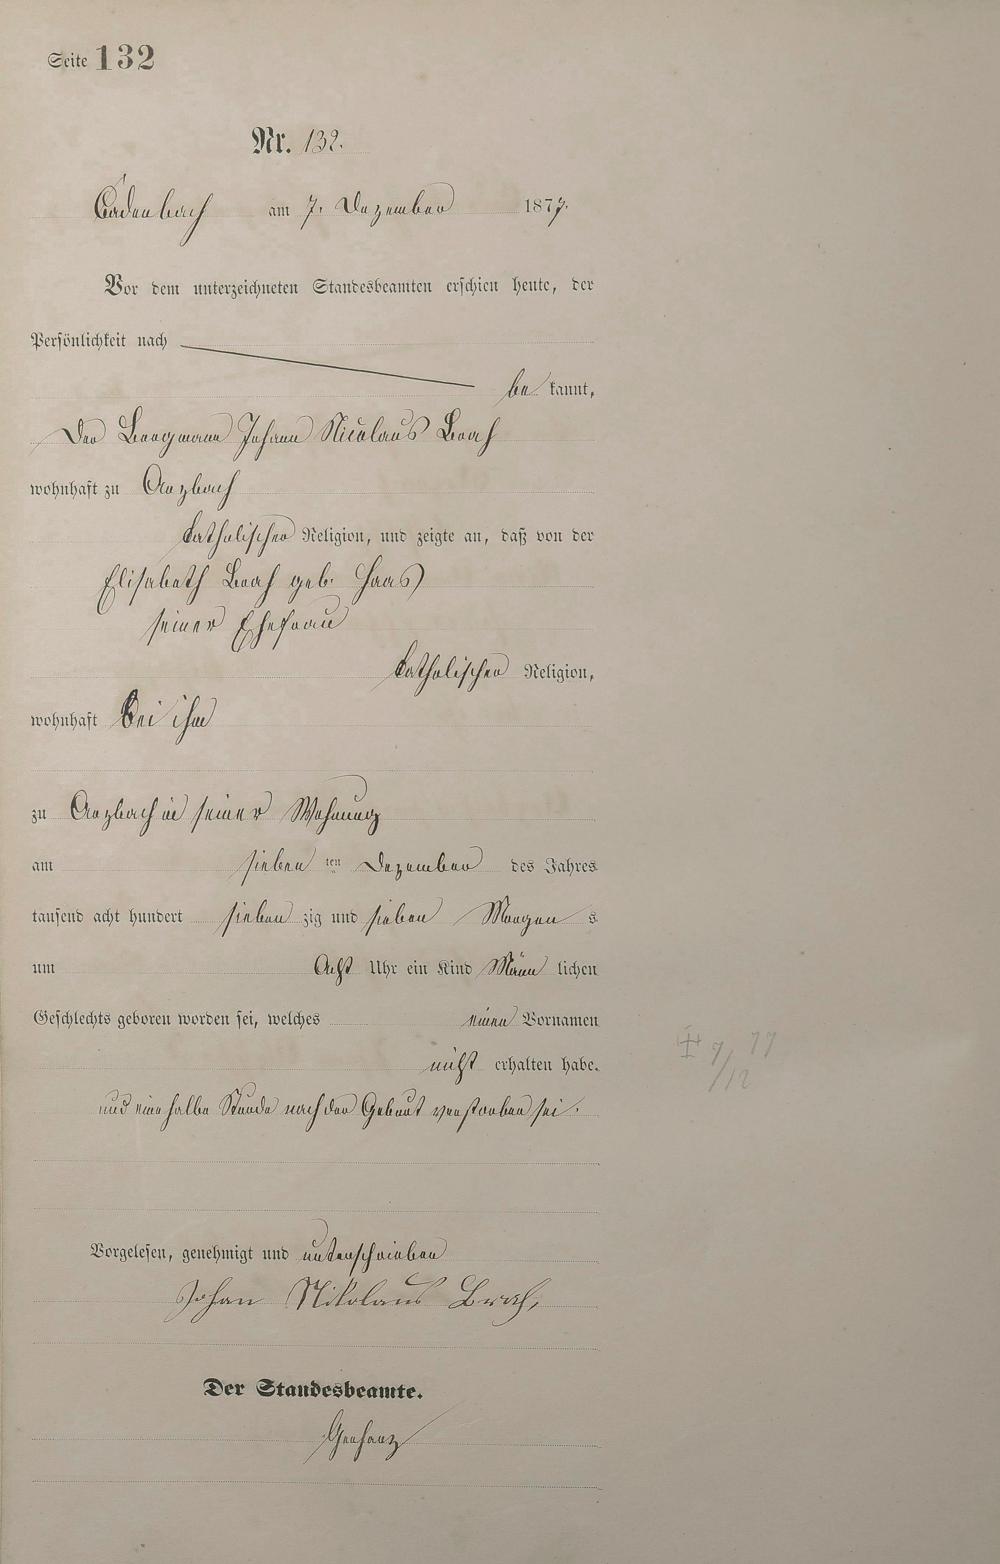 Seite 132
Nr. 132.
Cadenbach am 7. Dezember 1877.
Vor dem unterzeichneten Standesbeamten erschien heute, der
Persönlichkeit nach
be kannt,
Der Bergmann Johann Nicolaus Brah
wohnhaft zu Arzbach
katholischer Religion, und zeigte an, daß von der
Elisabeth Brah geb. Haas
seiner Ehefrau
katholischer Religion,
wohnhaft bei ihm
zu Arzbach in seiner Wohnung
am sieben ten Dezember des Jahres
tausend acht hundert sieben zig und sieben Morgen s
um Acht Uhr ein Kind Männ lichen
Geschlechts geboren worden sei, welches einen Vornamen
nicht erhalten habe.
und eine halbe Stunde nach der Geburt verstorben sei.
+ 7/12 77
Vorgelesen, genehmigt und unterschrieben
Johan Nikolaus Brah,
Der Standesbeamte.